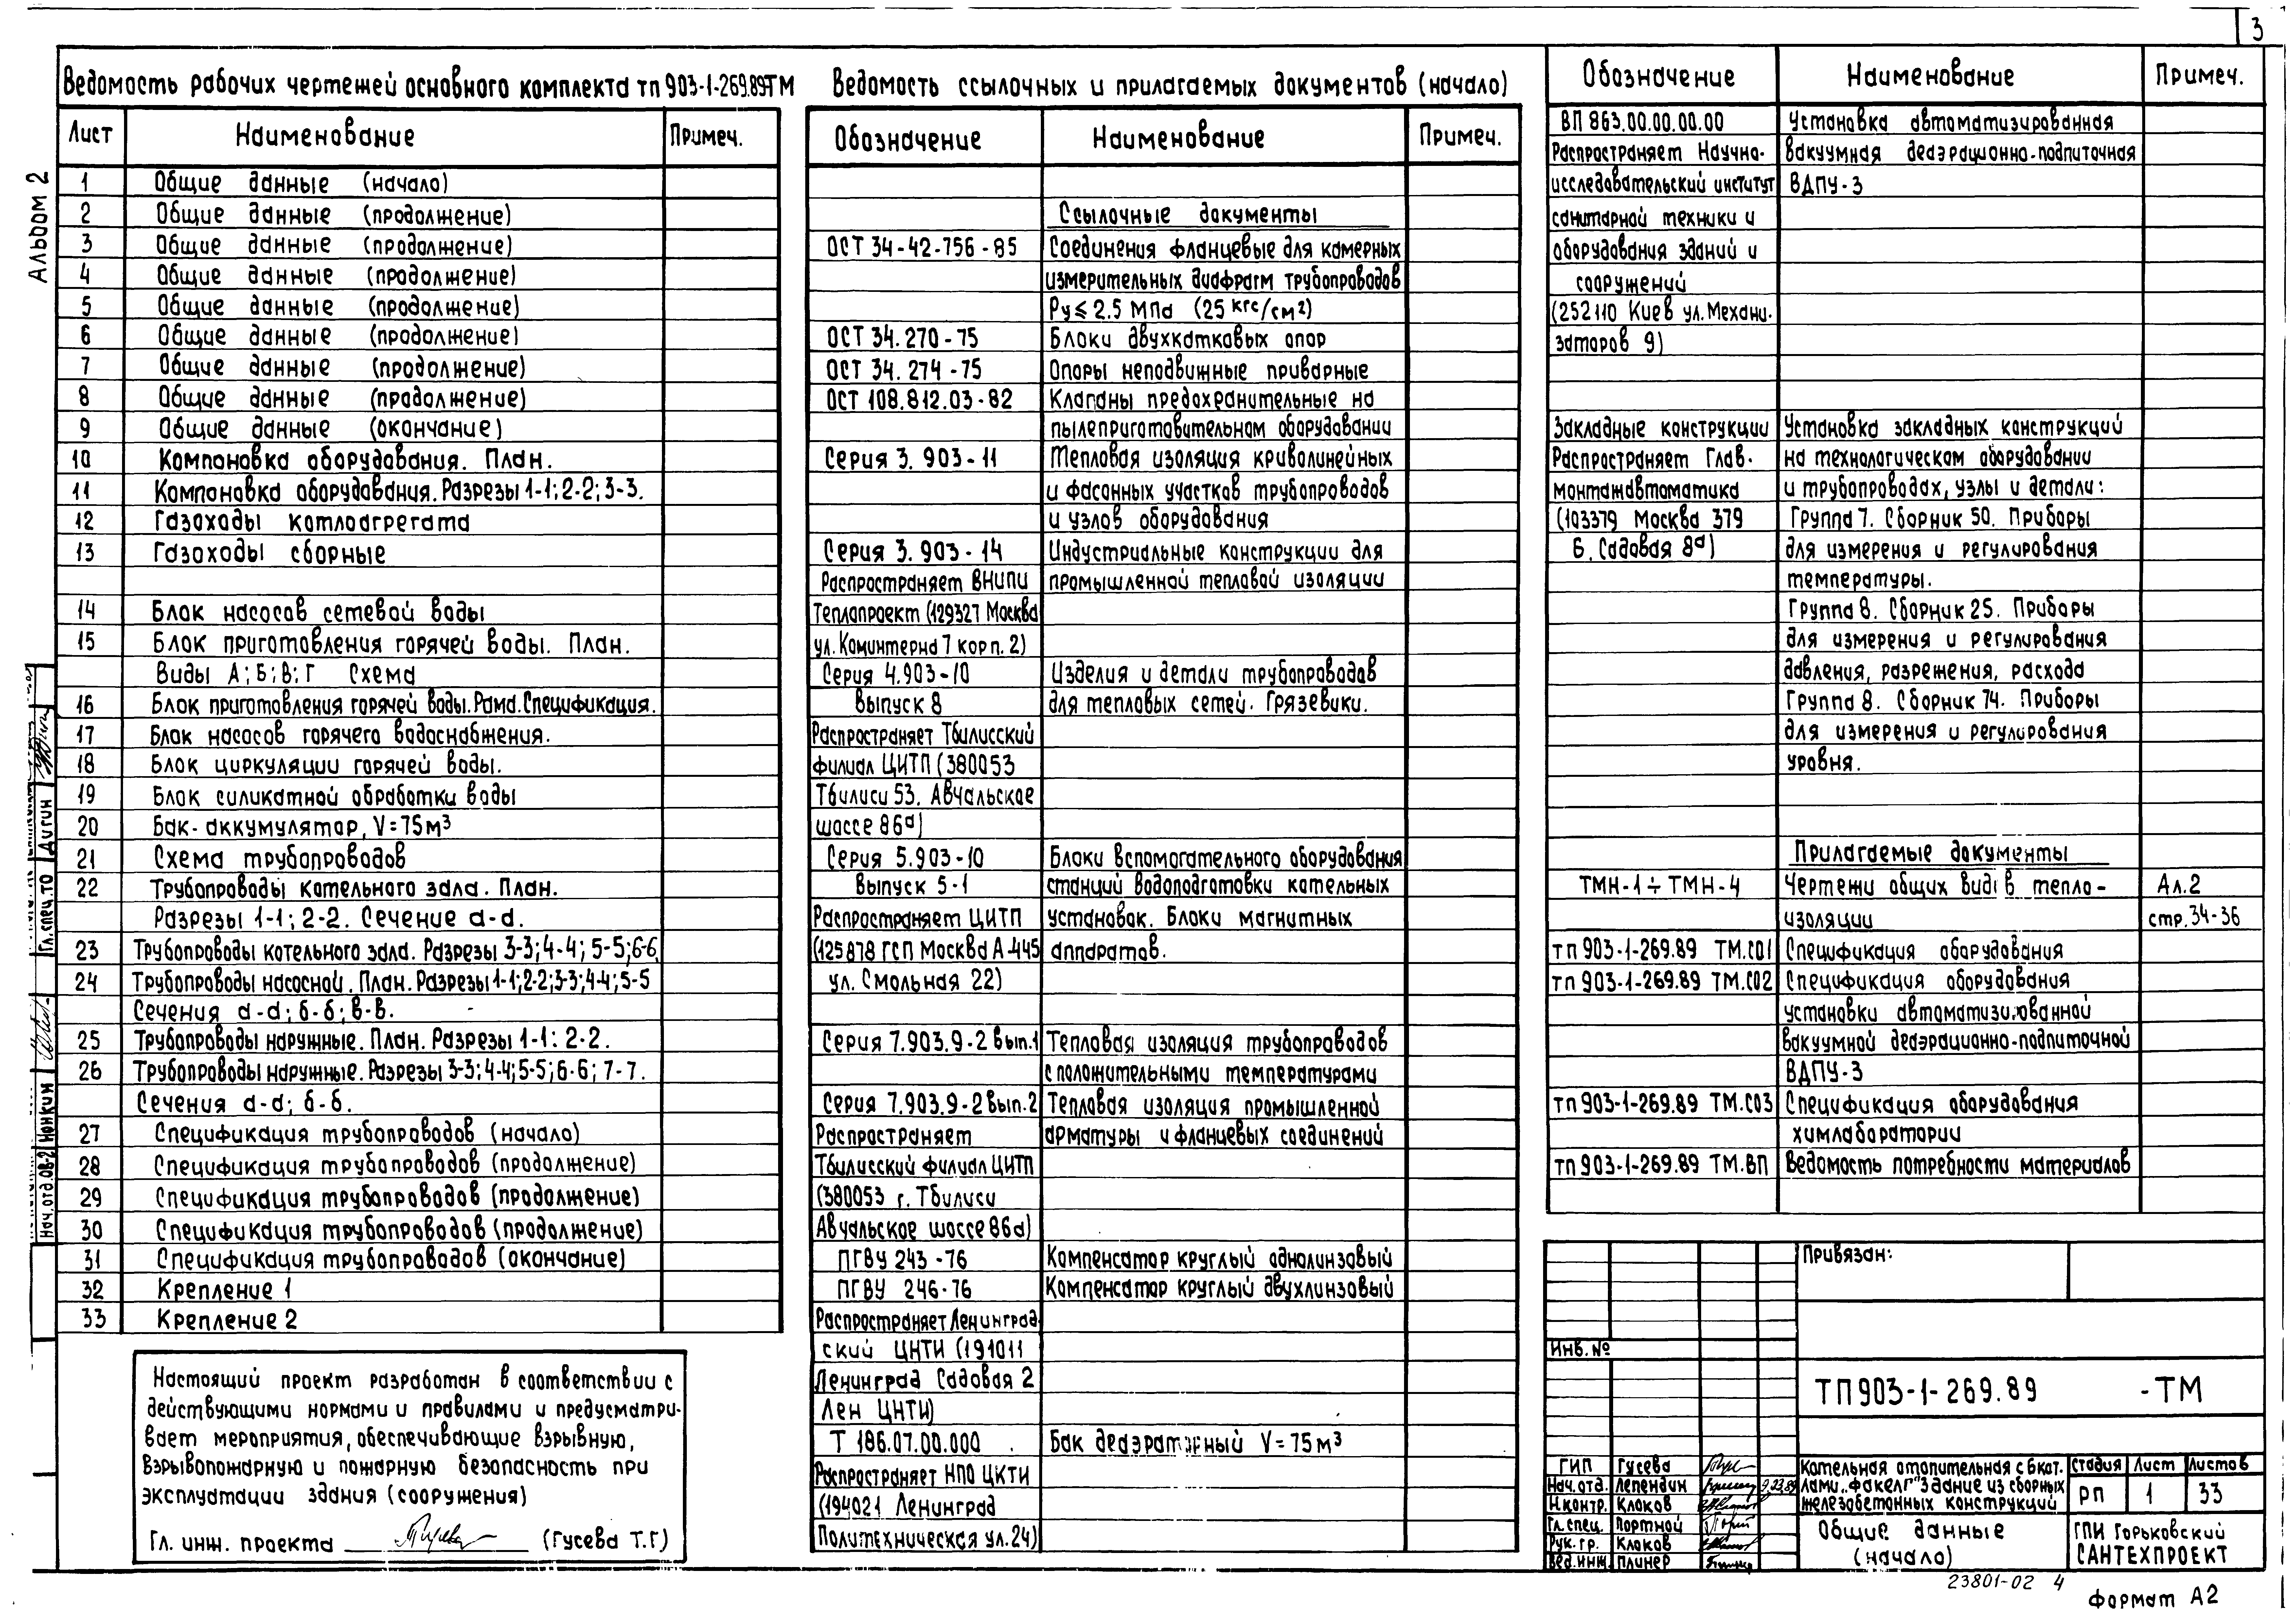 3
Альбом 2
Ведомость рабочих чертежей основного комплекта тп 903-1-269.89ТМ
Лист Наименование Примеч.
1 Общие данные (начало)
2 Общие данные (продолжение)
3 Общие данные (продолжение)
4 Общие данные (продолжение)
5 Общие данные (продолжение)
6 Общие данные (продолжение)
7 Общие данные (продолжение)
8 Общие данные (продолжение)
9 Общие данные (окончание)
10 Компоновка оборудования. План.
11 Компоновка оборудования. Разрезы 1-1; 2-2; 3-3.
12 Газоходы котлоагрегата
13 Газоходы сборные
14 Блок насосов сетевой воды
15 Блок приготовления горячей воды. План.
Виды А; Б; В; Г Схема
16 Блок приготовления горячей воды. Рама. Спецификация.
17 Блок насосов горячего водоснабжения.
18 Блок циркуляции горячей воды.
19 Блок силикатной обработки воды
20 Бак-аккумулятор, V=75м³
21 Схема трубопроводов
22 Трубопроводы котельного зала. План.
Разрезы 1-1; 2-2. Сечение а-а.
23 Трубопроводы котельного зала. Разрезы 3-3; 4-4; 5-5; 6-6.
24 Трубопроводы насосной. План. Разрезы 1-1; 2-2; 3-3; 4-4; 5-5
Сечения а-а; б-б; в-в.
25 Трубопроводы наружные. План. Разрезы 1-1; 2-2.
26 Трубопроводы наружные. Разрезы 3-3; 4-4; 5-5; 6-6; 7-7.
Сечения а-а; б-б.
27 Спецификация трубопроводов (начало)
28 Спецификация трубопроводов (продолжение)
29 Спецификация трубопроводов (продолжение)
30 Спецификация трубопроводов (продолжение)
31 Спецификация трубопроводов (окончание)
32 Крепление 1
33 Крепление 2
Настоящий проект разработан в соответствии с
действующими нормами и правилами и предусматри-
вает мероприятия, обеспечивающие взрывную,
взрывопожарную и пожарную безопасность при
эксплуатации здания (сооружения)
Гл. инж. проекта (Гусева Т.Г)
Гл.спец.ТО Дигин
Нач.отд.ОВ-2 Нонкин
Ведомость ссылочных и прилагаемых документов (начало)
Обозначение Наименование Примеч.
Ссылочные документы
ОСТ 34-42-756-85 Соединения фланцевые для камерных
измерительных диафрагм трубопроводов
Ру≤2.5 МПа (25 кгс/см²)
ОСТ 34.270-75 Блоки двухкатковых опор
ОСТ 34.274-75 Опоры неподвижные приварные
ОСТ 108.812.03-82 Клапаны предохранительные на
пылеприготовительном оборудовании
Серия 3.903-11 Тепловая изоляция криволинейных
и фасонных участков трубопроводов
и узлов оборудования
Серия 3.903-14 Индустриальные конструкции для
Распространяет ВНИПИ промышленной тепловой изоляции
Теплопроект (129327 Москва
ул. Коминтерна 7 корп. 2)
Серия 4.903-10 Изделия и детали трубопроводов
Выпуск 8 для тепловых сетей. Грязевики.
Распространяет Тбилисский
филиал ЦИТП (380053
Тбилиси 53. Авчальское
шоссе 86а)
Серия 5.903-10 Блоки вспомогательного оборудования
Выпуск 5-1 станций водоподготовки котельных
Распространяет ЦИТП установок. Блоки магнитных
(125878 ГСП Москва А-445 аппаратов.
ул. Смольная 22)
Серия 7.903.9-2 вып.1 Тепловая изоляция трубопроводов
с положительными температурами
Серия 7.903.9-2 вып.2 Тепловая изоляция промышленной
Распространяет арматуры и фланцевых соединений
Тбилисский филиал ЦИТП
(380053 г. Тбилиси
Авчальское шоссе 86а)
ПГВУ 243-76 Компенсатор круглый однолинзовый
ПГВУ 246-76 Компенсатор круглый двухлинзовый
Распространяет Ленинград
ский ЦНТИ (191011
Ленинград Садовая 2
Лен ЦНТИ)
Т 186.07.00.000 Бак деаэраторный V=75м³
Распространяет НПО ЦКТИ
(194021 Ленинград
Политехническая ул. 24)
Обозначение Наименование Примеч.
ВП 863.00.00.00.00 Установка автоматизированная
Распространяет Научно- вакуумная деаэрационно-подпиточная
исследовательский институт ВДПУ-3
санитарной техники и
оборудования зданий и
сооружений
(252110 Киев ул. Механи-
заторов 9)
Закладные конструкции Установка закладных конструкций
Распространяет Глав- на технологическом оборудовании
монтажавтоматика и трубопроводах, узлы и детали:
(103379 Москва 379 Группа 7. Сборник 50. Приборы
Б. Садовая 8а) для измерения и регулирования
температуры.
Группа 8. Сборник 25. Приборы
для измерения и регулирования
давления, разрежения, расхода
Группа 8. Сборник 74. Приборы
для измерения и регулирования
уровня.
Прилагаемые документы
ТМН-1÷ТМН-4 Чертежи общих видов тепло- Ал.2
изоляции стр. 34-36
тп 903-1-269.89 ТМ.СО1 Спецификация оборудования
тп 903-1-269.89 ТМ.СО2 Спецификация оборудования
установки автоматизированной
вакуумной деаэрационно-подпиточной
ВДПУ-3
тп 903-1-269.89 ТМ.СО3 Спецификация оборудования
химлаборатории
тп 903-1-269.89 ТМ.ВП Ведомость потребности материалов
Привязан:
Инв. №
ТП 903-1-269.89 -ТМ
ГИП Гусева
Нач.отд. Лепендин
Н.контр. Клоков
Гл.спец. Портной
Рук.гр. Клоков
Вед.инж. Плинер
Котельная отопительная с 6 кот-
лами „Факел" Здание из сборных
железобетонных конструкций
Стадия Лист Листов
РП 1 33
Общие данные
(начало)
ГПИ Горьковский
САНТЕХПРОЕКТ
23801-02 4
Формат А2